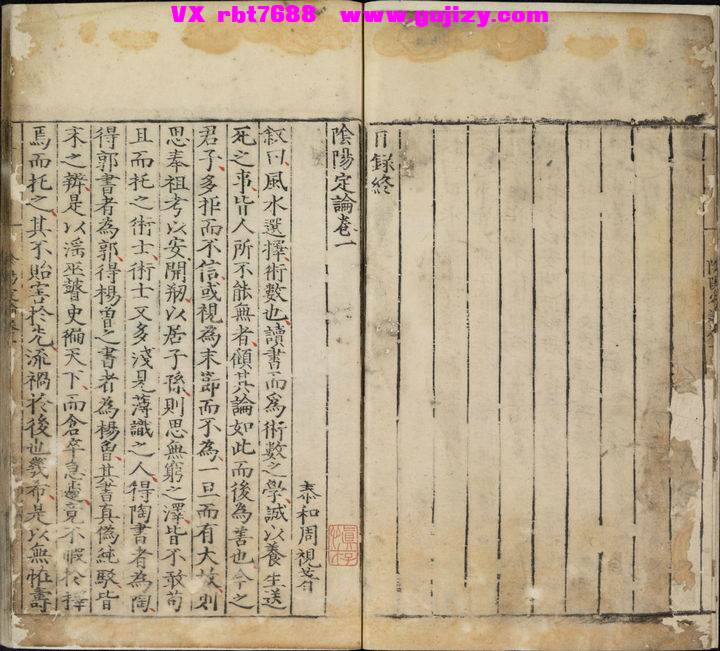 VX rbt7688 www.gujizy.com
目録終
陰陽定論卷一
泰和周視著
叙曰風水選擇術數也讀書而爲術數之學誠以養生送
死之事皆人所不能無者顧其論如此而後為善也今之
君子多拒而不信或視為末節而不為一旦而有大故則
思奉祖考以安開剏以居子孫則思無窮之澤皆不敢苟
且而托之術士術士又多淺見薄識之人得陶書者為陶
得郭書者為郭得楊曽之書者為楊曽其書真偽純駁皆
未之辨是以滛巫瞽史徧天下而倉卒急遽竟不暇於擇
焉而托之其不貽害於先流禍於後也幾希是以無恠壽